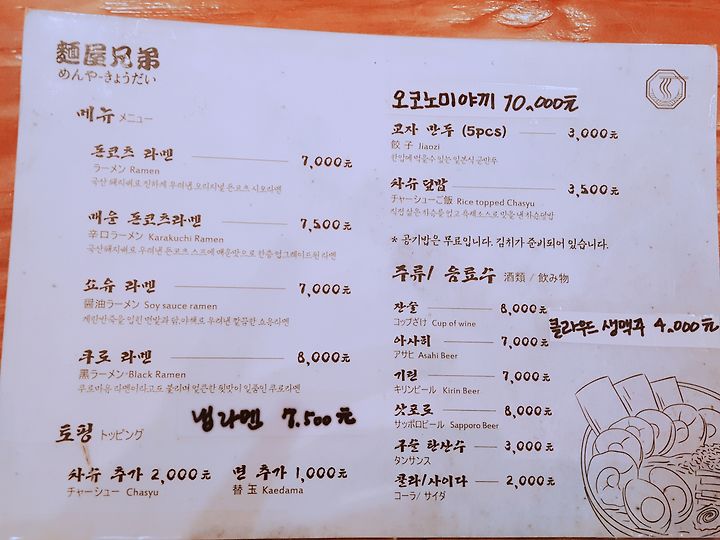 麵屋兄弟
めんや-きょうだい
메뉴 メニュー
돈코츠 라멘 7,000元
ラーメン Ramen
국산 돼지뼈로 진하게 우려낸 오리지널 돈코츠 시오라멘
매운 돈코츠라멘 7,500元
辛口ラーメン Karakuchi Ramen
국산돼지뼈로 우려낸 돈코츠 스프에 매운맛으로 한층 업그레이드된 라멘
쇼유 라멘 7,000元
醤油ラーメン Soy sauce ramen
계란반죽을 입힌 면발과 닭,야채로 우려낸 깔끔한 쇼유라멘
쿠로 라멘 8,000元
黒ラーメン Black Ramen
쿠로마유 라멘이라고도 불리며 얼큰한 뒷맛이 일품인 쿠로라멘
냉라멘 7.500元
토핑 トッピング
차슈 추가 2,000元 면 추가 1,000元
チャーシュー Chasyu 替玉 Kaedama
오코노미야끼 10,000元
교자 만두 (5pcs) 3,000元
餃子 Jiaozi
한입에 먹을수있는 일본식 군만두
차슈 덮밥 3,500元
チャーシューご飯 Rice topped Chasyu
직접 삶은 차슈를 얹고 특제소스로 맛을 낸 차슈덮밥
* 공기밥은 무료입니다. 김치가 준비되어 있습니다.
주류/ 음료수 酒類 / 飲み物
잔술 8,000元
コップざけ Cup of wine
클라우드 생맥주 4,000元
아사히 7,000元
アサヒ Asahi Beer
기린 7,000元
キリンビール Kirin Beer
삿포로 8,000元
サッポロビール Sapporo Beer
구슬 탄산수 3,000元
タンサンス
콜라/사이다 2,000元
コーラ/ サイダ